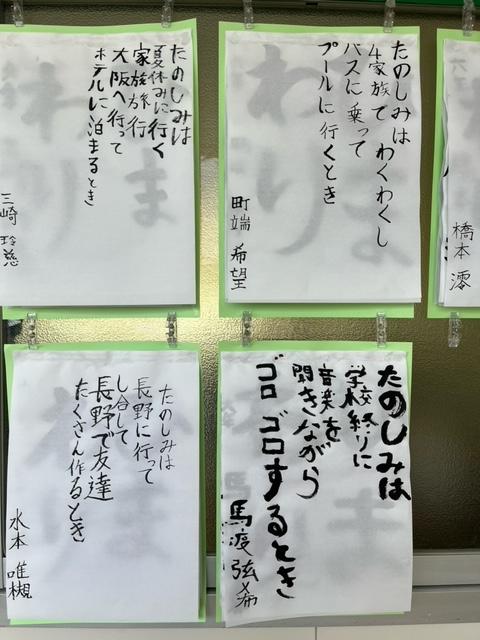 たのしみは
夏休みに行く
家族旅行
大阪へ行って
ホテルに泊まるとき
三崎 玲慈
たのしみは
4家族で わくわくし
バスに乗って
プールに行くとき
町端 希望
橋本 澪
たのしみは
長野に行って
し合して
長野で友達
たくさん作るとき
水本 唯槻
たのしみは
学校終りに
音楽を
聞きながら
ゴロゴロするとき
馬渡 弦希